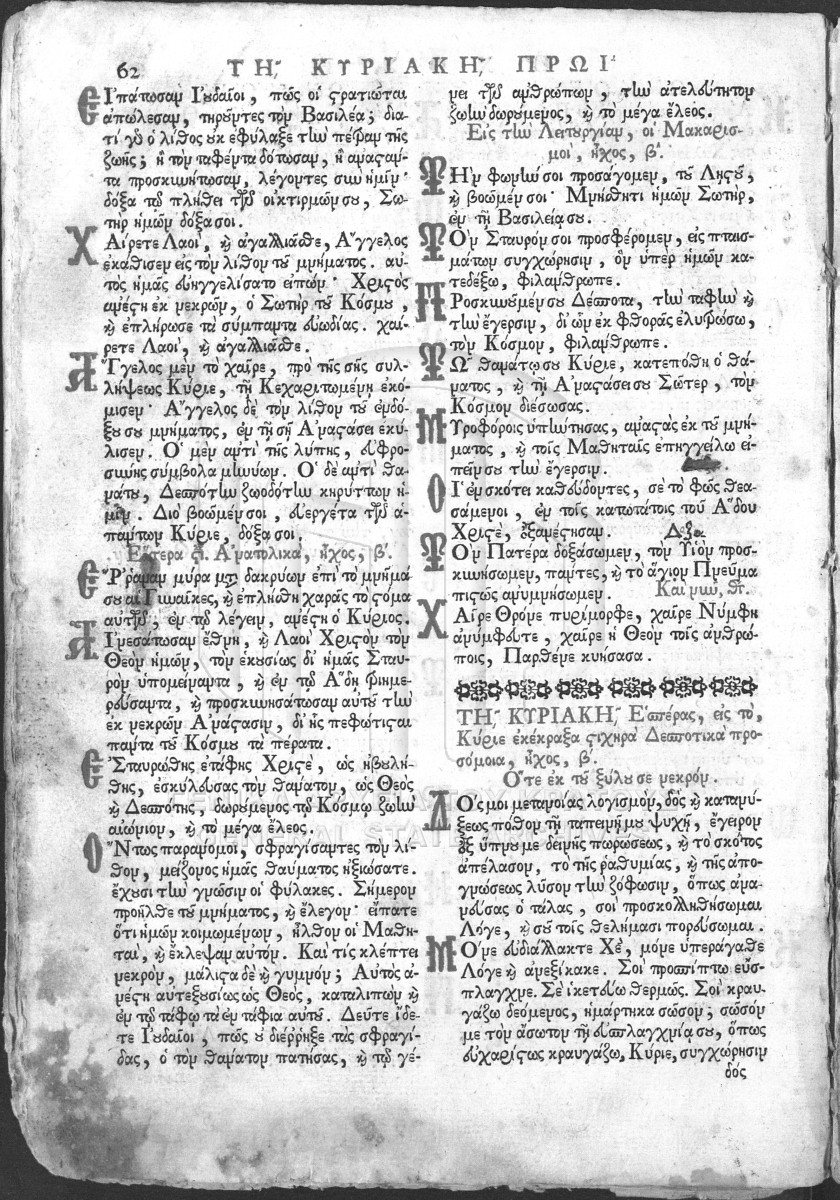 62 Τῌ͂ ΚΥΡΙΑΚῌ͂ ΠΡΩῚ
Εἰπάτωσαν Ἰουδαῖοι, πῶς οἱ στρατιῶται
ἀπώλεσαν, τηροῦντες τὸν Βασιλέα; δια-
τί γὰρ ὁ λίθος οὐκ ἐφύλαξε τὴν πέτραν τῆς
ζωῆς; ἢ τὸν ταφέντα δότωσαν, ἢ ἀναστάν-
τα προσκυνήτωσαν, λέγοντες σὺν ἡμῖν·
δόξα τῷ πλήθει τῶν οἰκτιρμῶν σου, Σω-
τὴρ ἡμῶν δόξα σοι.
Χαίρετε Λαοί, καὶ ἀγαλλιᾶσθε, Ἄγγελος
ἐκάθισεν εἰς τὸν λίθον τοῦ μνήματος. αὐ-
τὸς ἡμᾶς εὐηγγελίσατο εἰπών· Χριστὸς
ἀνέστη ἐκ νεκρῶν, ὁ Σωτὴρ τοῦ Κόσμου,
καὶ ἐπλήρωσε τὰ σύμπαντα εὐωδίας. χαί-
ρετε Λαοί, καὶ ἀγαλλιᾶσθε.
Ἄγγελος μὲν τὸ χαῖρε, πρὸ τῆς σῆς συλ-
λήψεως Κύριε, τῇ Κεχαριτωμένῃ ἐκό-
μισεν· Ἄγγελος δὲ τὸν λίθον τοῦ ἐνδό-
ξου σου μνήματος, ἐν τῇ σῇ Ἀναστάσει ἐκύ-
λισεν. Ὁ μὲν ἀντὶ τῆς λύπης, εὐφρο-
σύνης σύμβολα μηνύων. Ὁ δὲ ἀντὶ θα-
νάτου, Δεσπότην ζωοδότην κηρύττων ἡ-
μῖν. Διὸ βοῶμέν σοι, εὐεργέτα τῶν ἁ-
πάντων Κύριε, δόξα σοι.
Ἕτερα ς. Ἀνατολικά, ἦχος, β΄.
Ἔρραναν μύρα μετὰ δακρύων ἐπὶ τὸ μνῆμά
σου αἱ Γυναῖκες, καὶ ἐπλήσθη χαρᾶς τὸ στόμα
αὐτῶν, ἐν τῷ λέγειν, ἀνέστη ὁ Κύριος.
Αἰνεσάτωσαν ἔθνη, καὶ Λαοὶ Χριστὸν τὸν
Θεὸν ἡμῶν, τὸν ἑκουσίως δι' ἡμᾶς Σταυ-
ρὸν ὑπομείναντα, καὶ ἐν τῷ ᾍδῃ φιημε-
ρεύσαντα, καὶ προσκυνησάτωσαν αὐτοῦ τὴν
ἐκ νεκρῶν Ἀνάστασιν, δι' ἧς πεφώτισται
πάντα τοῦ Κόσμου τὰ πέρατα.
Ἐσταυρώθης ἐτάφης Χριστέ, ὡς ἠβουλή-
θης, ἐσκύλευσας τὸν θάνατον, ὡς Θεὸς
καὶ Δεσπότης, δωρούμενος τῷ Κόσμῳ ζωὴν
αἰώνιον, καὶ τὸ μέγα ἔλεος.
Ὄντως παράνομοι, σφραγίσαντες τὸν λί-
θον, μείζονος ἡμᾶς θαύματος ἠξιώσατε.
ἔχουσι τὴν γνῶσιν οἱ φύλακες. Σήμερον
προῆλθε τοῦ μνήματος, καὶ ἔλεγον· εἴπατε
ὅτι ἡμῶν κοιμωμένων, ἦλθον οἱ Μαθη-
ταί, καὶ ἔκλεψαν αὐτόν. Καὶ τίς κλέπτει
νεκρόν, μάλιστα δὲ καὶ γυμνόν; Αὐτὸς ἀ-
νέστη αὐτεξουσίως ὡς Θεός, καταλιπὼν καὶ
ἐν τῷ τάφῳ τὰ ἐντάφια αὐτοῦ. Δεῦτε ἴδε-
τε Ἰουδαῖοι, πῶς οὐ διέρρηξε τὰς σφραγῖ-
δας, ὁ τὸν θάνατον πατήσας, καὶ τῷ γέ-
νει τῶν ἀνθρώπων, τὴν ἀτελεύτητον
ζωὴν δωρούμενος, καὶ τὸ μέγα ἔλεος.
Εἰς τὴν Λειτουργίαν, οἱ Μακαρισ-
μοί, ἦχος, β΄.
Τὴν φωνήν σοι προσάγομεν, τοῦ Ληστοῦ,
καὶ βοῶμέν σοι· Μνήσθητι ἡμῶν Σωτήρ,
ἐν τῇ Βασιλείᾳ σου.
Τὸν Σταυρόν σοι προσφέρομεν, εἰς πταισ-
μάτων συγχώρησιν, ὃν ὑπὲρ ἡμῶν κα-
τεδέξω, φιλάνθρωπε.
Προσκυνοῦμέν σου Δέσποτα, τὴν ταφὴν καὶ
τὴν ἔγερσιν, δι' ὧν ἐκ φθορᾶς ἐλυτρώσω,
τὸν Κόσμον, φιλάνθρωπε.
Τῷ θανάτῳ σου Κύριε, κατεπόθη ὁ θά-
νατος, καὶ τῇ Ἀναστάσει σου Σῶτερ, τὸν
Κόσμον διέσωσας.
Μυροφόροις ὑπήντησας, ἀναστὰς ἐκ τοῦ μνή-
ματος, καὶ τοῖς Μαθηταῖς ἐπηγγείλω εἰ-
πεῖν σου τὴν ἔγερσιν.
Οἱ ἐν σκότει καθεύδοντες, σὲ τὸ φῶς θεα-
σάμενοι, ἐν τοῖς κατωτάτοις τοῦ ᾍδου
Χριστέ, ἐξανέστησαν. Δόξα
Τὸν Πατέρα δοξάσωμεν, τὸν Υἱὸν προσ-
κυνήσωμεν, πάντες, καὶ τὸ ἅγιον Πνεῦμα
πιστῶς ἀνυμνήσωμεν. Καὶ νῦν, Θτ.
Χαῖρε Θρόνε πυρίμορφε, χαῖρε Νύμφη
ἀνύμφευτε, χαῖρε ἡ Θεὸν τοῖς ἀνθρώ-
ποις, Παρθένε κυήσασα.
Τῌ͂ ΚΥΡΙΑΚῌ͂ Ἑσπέρας, εἰς τό,
Κύριε ἐκέκραξα στιχηρὰ Δεσποτικὰ προ-
σόμοια, ἦχος, β΄.
Ὅτε ἐκ τοῦ ξύλου σε νεκρόν.
Δός μοι μετανοίας λογισμόν, δὸς καὶ κατανύ-
ξεως πόθον τῇ ταπεινῇ μου ψυχῇ, ἔγειρον
ἐξ ὕπνου με δεινῆς πωρώσεως, καὶ τὸ σκότος
ἀπέλασον, τὸ τῆς ῥαθυμίας, καὶ τῆς ἀπο-
γνώσεως λῦσον τὴν ζόφωσιν, ὅπως ἀνα-
νεύσας ὁ τάλας, σοὶ προσκολληθήσωμαι
Λόγε, καὶ σοῦ τοῖς θελήμασι πορεύσωμαι.
Μόνε εὐδιάλλακτε Χέ, μόνε ὑπεράγαθε
Λόγε καὶ ἀνεξίκακε. Σοὶ προσπίπτω εὔσ-
πλαγχνε. Σὲ ἱκετεύω θερμῶς. Σοὶ κραυ-
γάζω δεόμενος, ἡμάρτηκα σῶσον· σῶσόν
με τὸν ἄσωτον τῇ εὐσπλαγχνίᾳ σου, ὅπως
εὐχαρίστως κραυγάζω, Κύριε, συγχώρησιν
δός